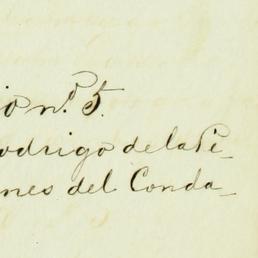 io nº 5.
odrigo de la Pe_
nes del Conda_